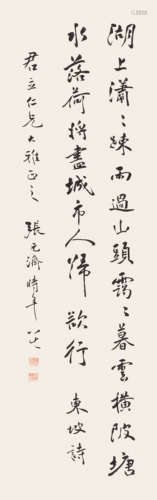 湖上瀟瀟疎雨過山頭靄靄暮雲橫陂塘
水落荷將盡城市人歸欲行 東坡詩
君立仁兄大雅正之 張元濟時年八六